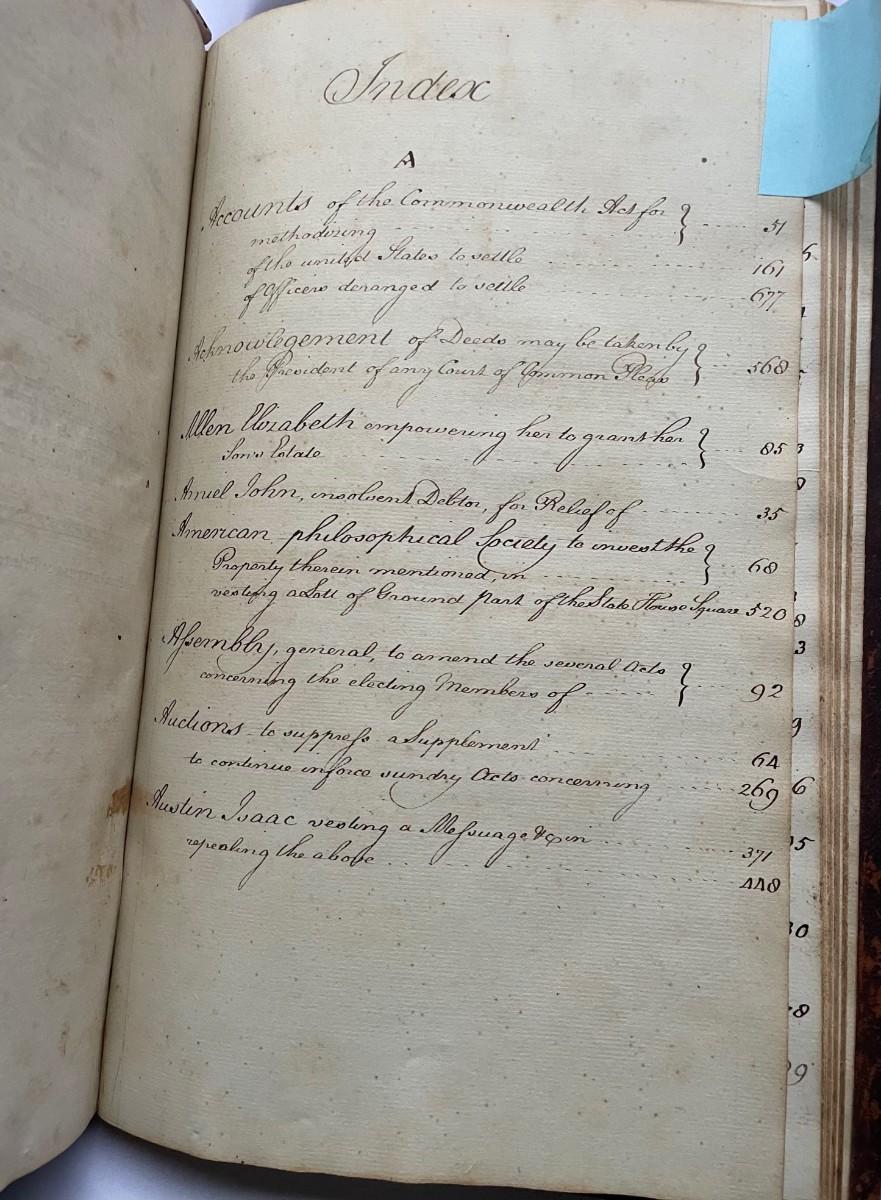 Index
A
Accounts of the Commonwealth Act for
methodizing 51
of the united States to settle 161
of Officers deranged to settle 677
Acknowlegement of Deeds may be taken by
the President of any Court of Common Pleas 568
Allen Elizabeth empowering her to grant her
Sons Estate 85
Amiel John, insolvent Debtor, for Relief of 35
American philosophical Society to invest the
Property therein mentioned, in 68
vesting a Lott of Ground part of the State House Square 520
Assembly, general, to amend the several Acts
concerning the electing Members of 92
Auctions to suppress a Supplement 64
to continue inforce sundry Acts concerning 269
Austin Isaac vesting a Messuage &c in 371
repealing the above 448